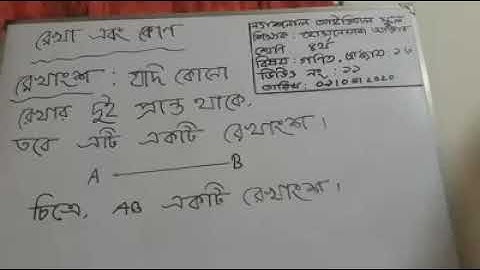 রেখা এবং কোণ
রেখাংশ : যদি কোনো
রেখার দুই প্রান্ত থাকে,
তবে এটি একটি রেখাংশ।
A B
চিত্রে, AB একটি রেখাংশ।
ন্যাশনাল আইডিয়াল স্কুল
শিক্ষক :
শ্রেণি ৪র্থ
বিষয় : গণিত,
ভিডিও নং : ১১
তারিখ :